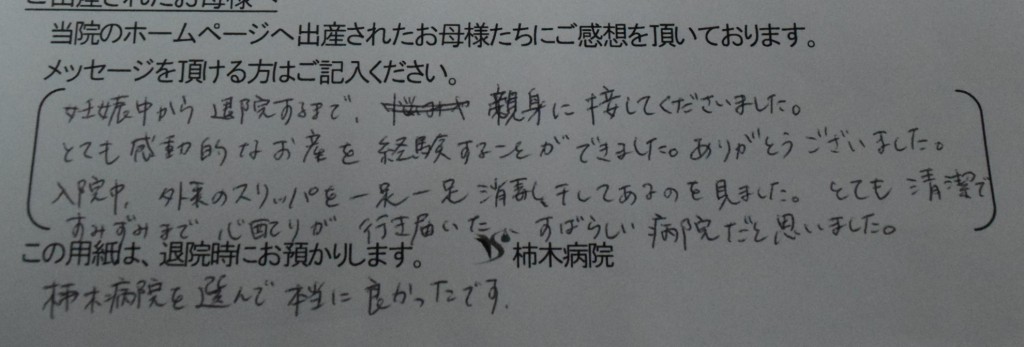 ご出産されたお母様へ
当院のホームページへ出産されたお母様たちにご感想を頂いております。
メッセージを頂ける方はご記入ください。
妊娠中から退院するまで、親身に接してくださいました。
とても感動的なお産を経験することができました。ありがとうございました。
入院中、外来のスリッパを一足一足消毒し干してあるのを見ました。とても清潔で
すみずみまで心配りが行き届いた、すばらしい病院だと思いました。
この用紙は、退院時にお預かりします。 柿木病院
柿木病院を選んで本当に良かったです。